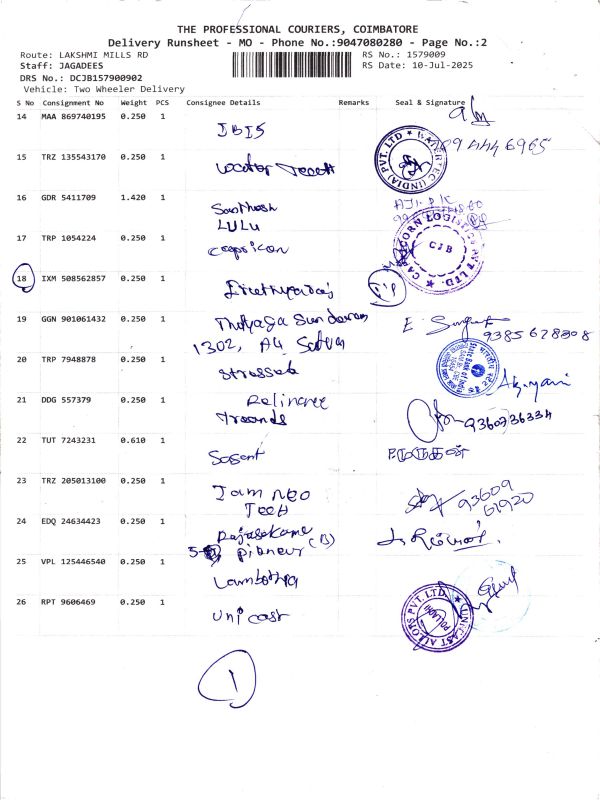 THE PROFESSIONAL COURIERS, COIMBATORE
Delivery Runsheet - MO - Phone No.:9047080280 - Page No.:2
Route: LAKSHMI MILLS RD
RS No.: 1579009
Staff: JAGADEES
RS Date: 10-Jul-2025
DRS No.: DCJB157900902
Vehicle: Two Wheeler Delivery
S No Consignment No Weight PCS Consignee Details Remarks Seal & Signature
14 MAA 869740195 0.250 1
IBIS
15 TRZ 135543170 0.250 1
16 GDR 5411709 1.420 1
Santhosh
LULU
17 TRP 1054224 0.250 1
capricon
CAPRICORN LOGISTICS PVT LTD. CJB
18 IXM 508562857 0.250 1
19 GGN 901061432 0.250 1
Thyaga Sundaram
9385678308
1302, A4
20 TRP 7948878 0.250 1
State Bank of India
21 DDG 557379 0.250 1
Relincree
Treands
9360736334
22 TUT 7243231 0.610 1
23 TRZ 205013100 0.250 1
Jam neo
Tech
93609
61920
24 EDQ 24634423 0.250 1
25 VPL 125446540 0.250 1
26 RPT 9606469 0.250 1
unicast
UNICAST ALLOYS PVT. LTD.
1